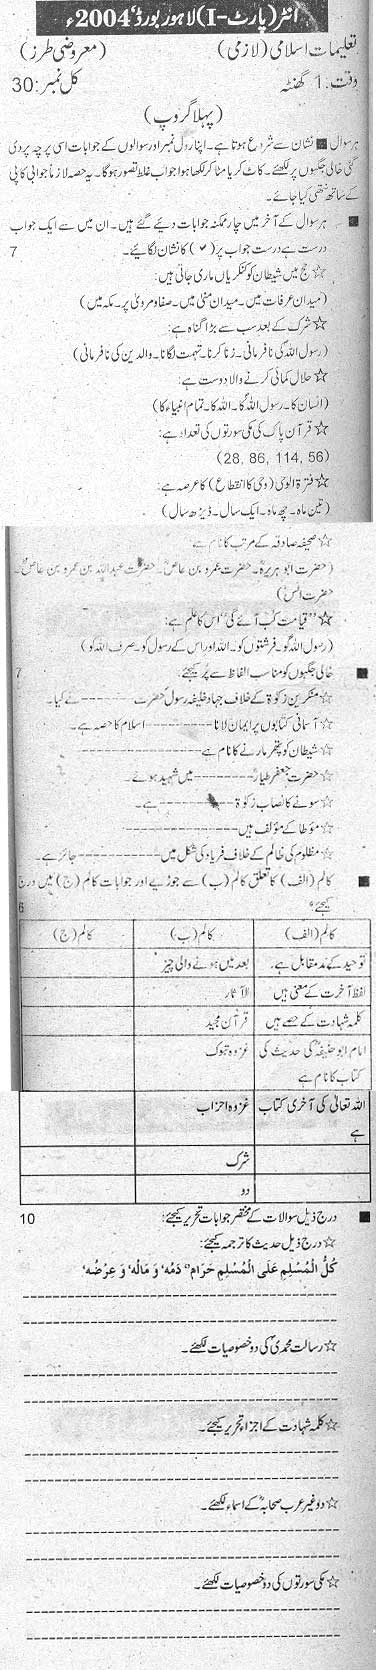 انٹر (پارٹ-I) لاہور بورڈ' 2004ء
تعلیمات اسلامی (لازمی) (معروضی طرز)
وقت: 1 گھنٹہ کل نمبر: 30
(پہلا گروپ)
ہر سوال ■ نشان سے شروع ہوتا ہے۔ اپنا رول نمبر اور سوالوں کے جوابات اسی پرچہ پر دی
گئی خالی جگہوں پر لکھئے۔ کاٹ کر یا مٹا کر لکھا ہوا جواب غلط تصور ہوگا۔ یہ حصہ لازماً جوابی کاپی
کے ساتھ نتھی کیا جائے۔
■ ہر سوال کے آخر میں چار ممکنہ جوابات دیئے گئے ہیں۔ ان میں سے ایک جواب
درست ہے درست جواب پر (✓) کا نشان لگائیے۔ 7
☆ حج میں شیطان کو کنکریاں ماری جاتی ہیں:
(میدان عرفات میں۔ میدان منیٰ میں۔ صفا و مروہ پر۔ مکہ میں)
☆ شرک کے بعد سب سے بڑا گناہ ہے:
(رسول اللہ کی نافرمانی۔ زنا کرنا۔ تہمت لگانا۔ والدین کی نافرمانی)
☆ حلال کمائی کرنے والا دوست ہے:
(انسان کا۔ رسول اللہؐ کا۔ اللہ کا۔ تمام انبیاء کا)
☆ قرآن پاک کی مکی سورتوں کی تعداد ہے:
(28, 86, 114, 56)
☆ فترۃ الوحی (وحی کا انقطاع) کا عرصہ ہے:
(تین ماہ۔ چھ ماہ۔ ایک سال۔ ڈیڑھ سال)
☆ صحیفہ صادقہ کے مرتب کا نام ہے
(حضرت ابو ہریرہؓ۔ حضرت عمرو بن عاصؓ۔ حضرت عبداللہ بن عمرو بن عاصؓ۔
حضرت انسؓ)
☆ "قیامت کب آئے گی" اس کا علم ہے:
(رسول اللہ کو۔ فرشتوں کو۔ اللہ اور اس کے رسول کو۔ صرف اللہ کو)
■ خالی جگہوں کو مناسب الفاظ سے پُر کیجئے: 7
☆ منکرین زکوٰۃ کے خلاف جہاد خلیفہ رسول حضرت --------- نے کیا۔
☆ آسمانی کتابوں پر ایمان لانا --------- اسلام کا حصہ ہے۔
☆ شیطان کو پتھر مارنے کا نام ہے ---------
☆ حضرت جعفر طیارؓ --------- میں شہید ہوئے۔
☆ سونے کا نصاب زکوٰۃ --------- ہے۔
☆ مؤطا کے مؤلف ہیں ---------
☆ مظلوم کی ظالم کے خلاف فریاد کی شکل میں --------- جائز ہے۔
■ کالم (الف) کا تعلق کالم (ب) سے جوڑیے اور جوابات کالم (ج) میں درج
کیجئے: 6
کالم (الف) کالم (ب) کالم (ج)
توحید کے مدمقابل ہے۔ بعد میں ہونے والی چیز
لفظ آخرت کے معنی ہیں الآثار
کلمہ شہادت کے حصے ہیں قرآن مجید
امام ابو حنیفہؒ کی حدیث کی غزوہ تبوک
کتاب کا نام ہے
اللہ تعالیٰ کی آخری کتاب غزوہ احزاب
ہے
شرک
دو
■ درج ذیل سوالات کے مختصر جوابات تحریر کیجئے: 10
☆ درج ذیل حدیث کا ترجمہ کیجئے:
كُلُّ الْمُسْلِمِ عَلَى الْمُسْلِمِ حَرَام" دَمُه' وَ مَالُه' وَ عِرْضُه'
☆ رسالت محمدیؐ کی دو خصوصیات لکھئے۔
☆ کلمہ شہادت کے اجزاء تحریر کیجئے۔
☆ دو غیر عرب صحابہؓ کے اسماء لکھئے۔
☆ مکی سورتوں کی دو خصوصیات لکھئے۔